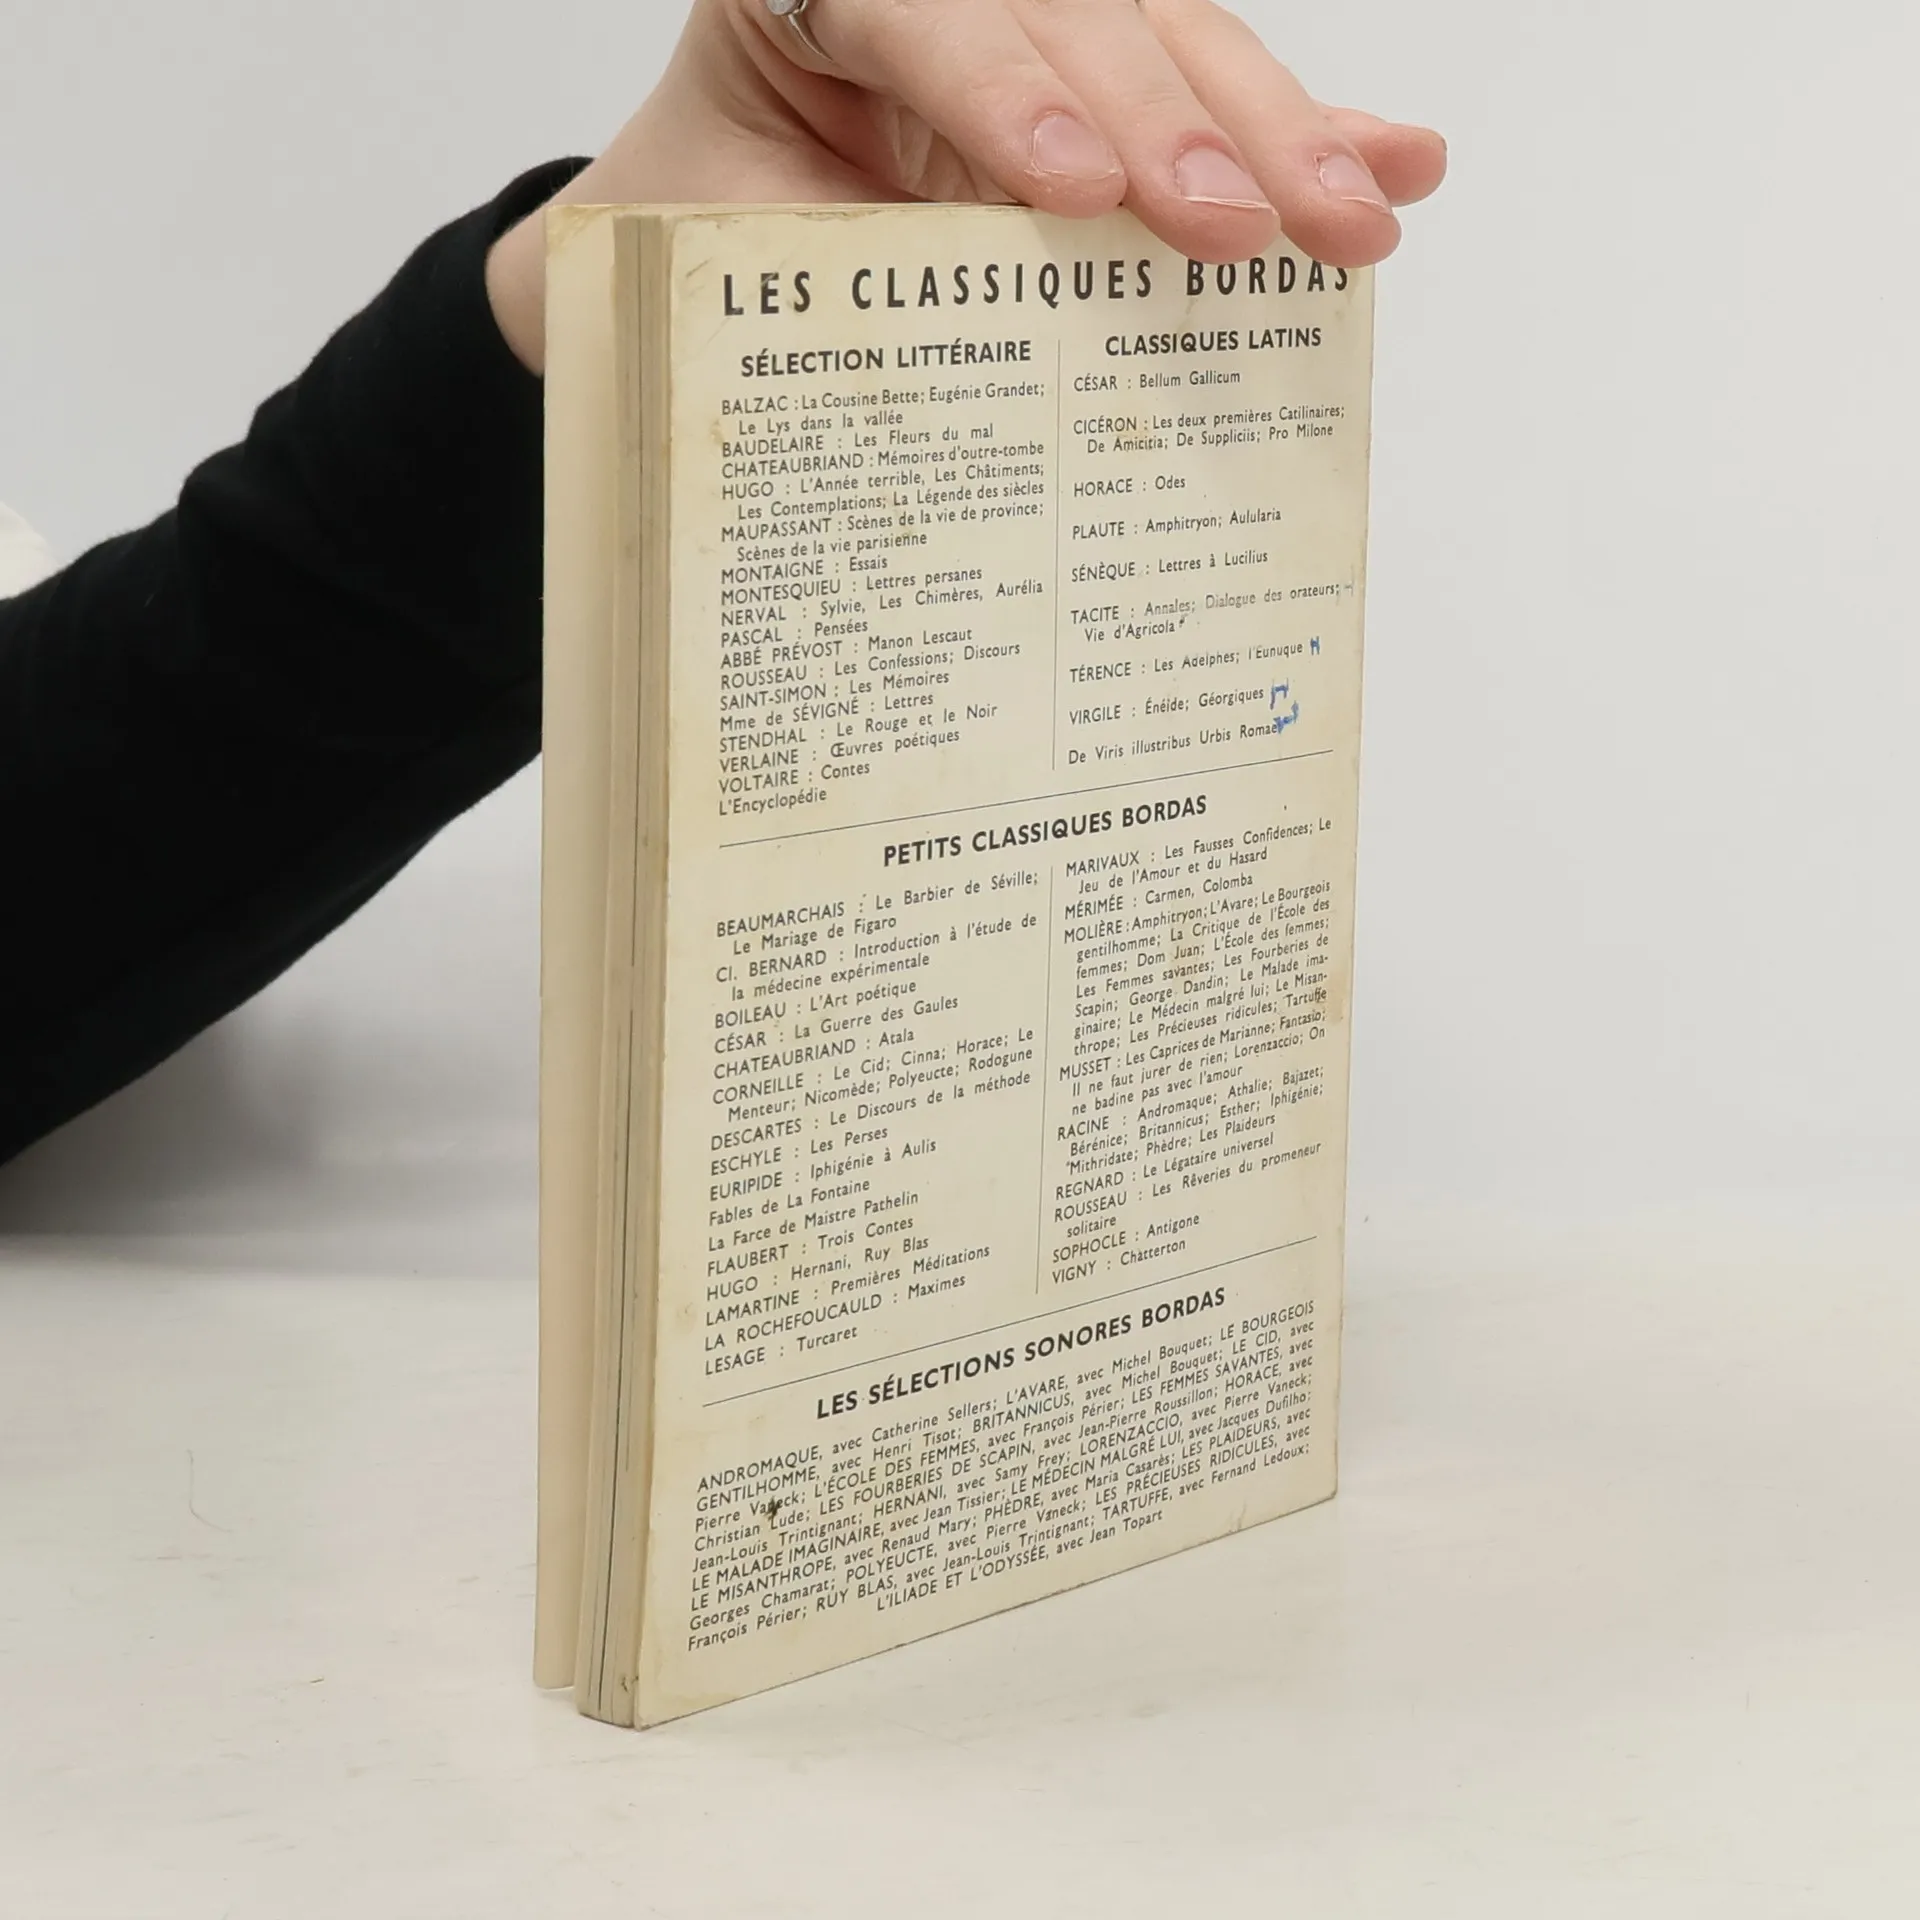 LES CLASSIQUES BORDAS
SÉLECTION LITTÉRAIRE
BALZAC : La Cousine Bette; Eugénie Grandet;
Le Lys dans la vallée
BAUDELAIRE : Les Fleurs du mal
CHATEAUBRIAND : Mémoires d'outre-tombe
HUGO : L'Année terrible, Les Châtiments;
Les Contemplations; La Légende des siècles
MAUPASSANT : Scènes de la vie de province;
Scènes de la vie parisienne
MONTAIGNE : Essais
MONTESQUIEU : Lettres persanes
NERVAL : Sylvie, Les Chimères, Aurélia
PASCAL : Pensées
ABBÉ PRÉVOST : Manon Lescaut
ROUSSEAU : Les Confessions; Discours
SAINT-SIMON : Les Mémoires
Mme de SÉVIGNÉ : Lettres
STENDHAL : Le Rouge et le Noir
VERLAINE : Œuvres poétiques
VOLTAIRE : Contes
L'Encyclopédie
CLASSIQUES LATINS
CÉSAR : Bellum Gallicum
CICÉRON : Les deux premières Catilinaires;
De Amicitia; De Suppliciis; Pro Milone
HORACE : Odes
PLAUTE : Amphitryon; Aulularia
SÉNÈQUE : Lettres à Lucilius
TACITE : Annales; Dialogue des orateurs;
Vie d'Agricola
TÉRENCE : Les Adelphes; l'Eunuque
VIRGILE : Énéide; Géorgiques
De Viris illustribus Urbis Romae
PETITS CLASSIQUES BORDAS
BEAUMARCHAIS : Le Barbier de Séville;
Le Mariage de Figaro
Cl. BERNARD : Introduction à l'étude de
la médecine expérimentale
BOILEAU : L'Art poétique
CÉSAR : La Guerre des Gaules
CHATEAUBRIAND : Atala
CORNEILLE : Le Cid; Cinna; Horace; Le
Menteur; Nicomède; Polyeucte; Rodogune
DESCARTES : Le Discours de la méthode
ESCHYLE : Les Perses
EURIPIDE : Iphigénie à Aulis
Fables de La Fontaine
La Farce de Maistre Pathelin
FLAUBERT : Trois Contes
HUGO : Hernani, Ruy Blas
LAMARTINE : Premières Méditations
LA ROCHEFOUCAULD : Maximes
LESAGE : Turcaret
MARIVAUX : Les Fausses Confidences; Le
Jeu de l'Amour et du Hasard
MÉRIMÉE : Carmen, Colomba
MOLIÈRE : Amphitryon; L'Avare; Le Bourgeois
gentilhomme; La Critique de l'École des
femmes; Dom Juan; L'École des femmes;
Les Femmes savantes; Les Fourberies de
Scapin; George Dandin; Le Malade ima-
ginaire; Le Médecin malgré lui; Le Misan-
thrope; Les Précieuses ridicules; Tartuffe
MUSSET : Les Caprices de Marianne; Fantasio;
Il ne faut jurer de rien; Lorenzaccio; On
ne badine pas avec l'amour
RACINE : Andromaque; Athalie; Bajazet;
Bérénice; Britannicus; Esther; Iphigénie;
Mithridate; Phèdre; Les Plaideurs
REGNARD : Le Légataire universel
ROUSSEAU : Les Rêveries du promeneur
solitaire
SOPHOCLE : Antigone
VIGNY : Chatterton
LES SÉLECTIONS SONORES BORDAS
ANDROMAQUE, avec Catherine Sellers; L'AVARE, avec Michel Bouquet; LE BOURGEOIS
GENTILHOMME, avec Henri Tisot; BRITANNICUS, avec Michel Bouquet; LE CID, avec
Pierre Vaneck; L'ÉCOLE DES FEMMES, avec François Périer; LES FEMMES SAVANTES, avec
Christian Lude; LES FOURBERIES DE SCAPIN, avec Jean-Pierre Roussillon; HORACE, avec
Jean-Louis Trintignant; HERNANI, avec Samy Frey; LORENZACCIO, avec Pierre Vaneck;
LE MALADE IMAGINAIRE, avec Jean Tissier; LE MÉDECIN MALGRÉ LUI, avec Jacques Dufilho;
LE MISANTHROPE, avec Renaud Mary; PHÈDRE, avec Maria Casarès; LES PLAIDEURS, avec
Georges Chamarat; POLYEUCTE, avec Pierre Vaneck; LES PRÉCIEUSES RIDICULES, avec
François Périer; RUY BLAS, avec Jean-Louis Trintignant; TARTUFFE, avec Fernand Ledoux;
L'ILIADE ET L'ODYSSÉE, avec Jean Topart